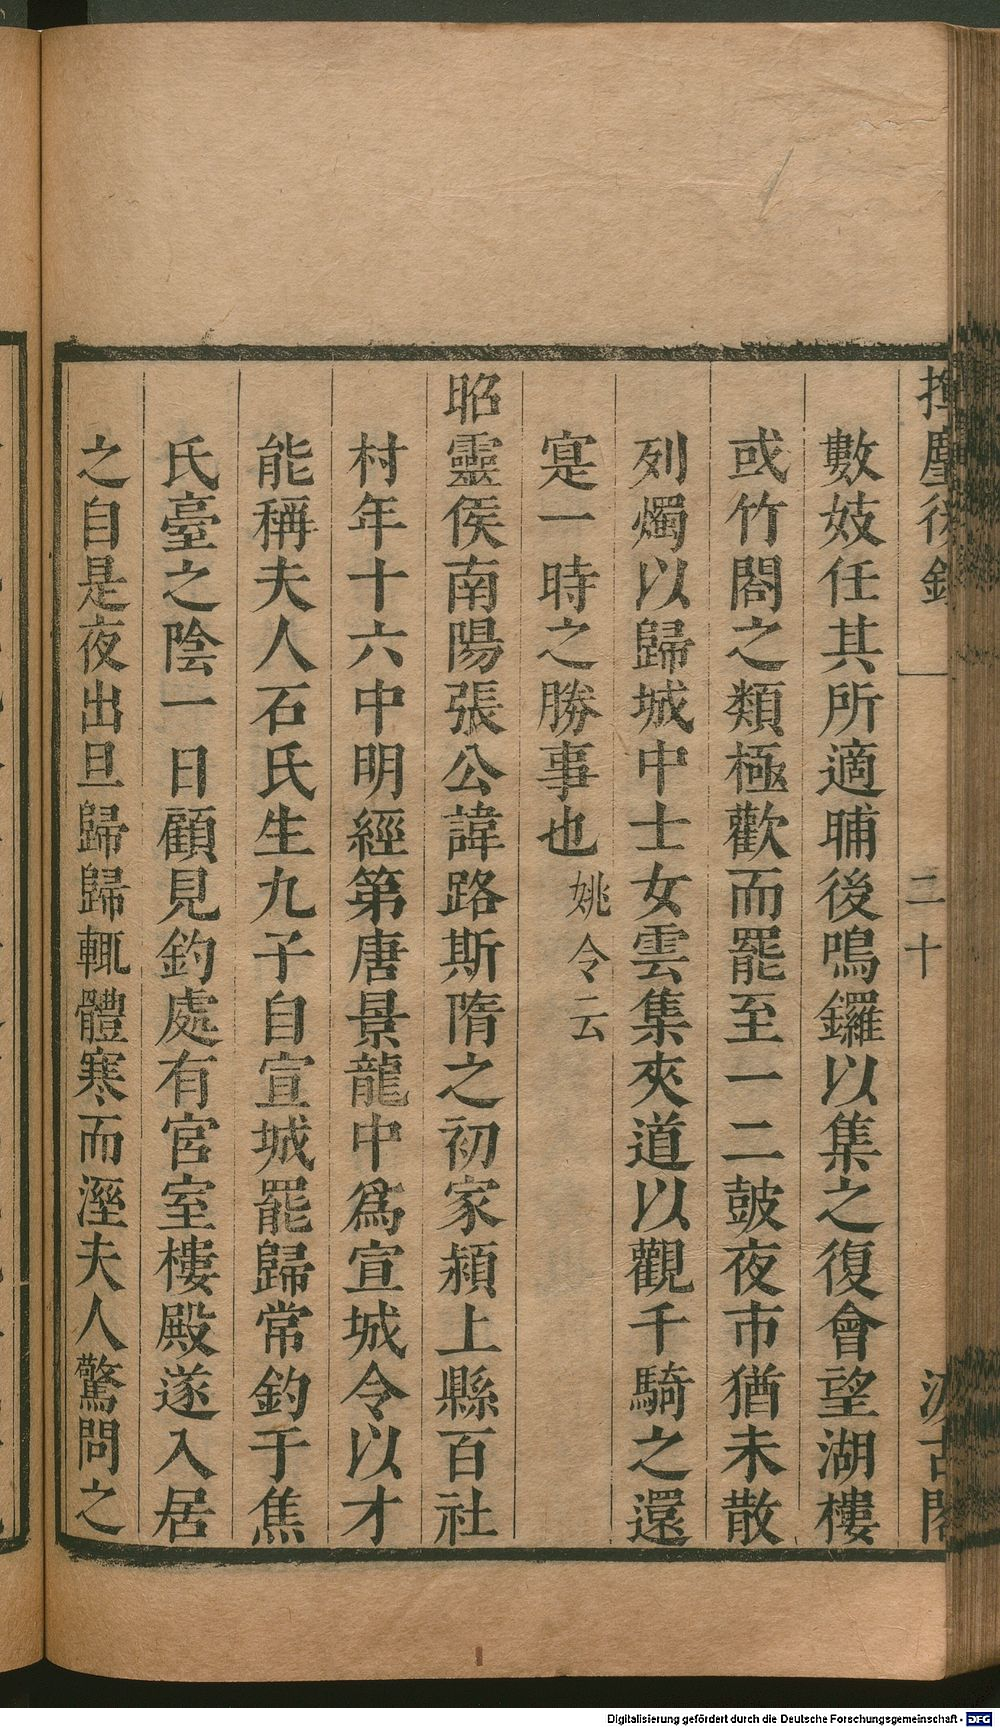 揮麈後錄 二十 汲古閣
數妓任其所適晡後鳴鑼以集之復會望湖樓
或竹閣之類極歡而罷至一二鼓夜市猶未散
列燭以歸城中士女雲集夾道以觀千騎之還
寔一時之勝事也姚令云
昭靈侯南陽張公諱路斯隋之初家潁上縣百社
村年十六中明經第唐景龍中爲宣城令以才
能稱夫人石氏生九子自宣城罷歸常釣于焦
氏臺之陰一日顧見釣處有宮室樓殿遂入居
之自是夜出旦歸歸輒體寒而溼夫人驚問之
Digitalisierung gefördert durch die Deutsche Forschungsgemeinschaft - DFG